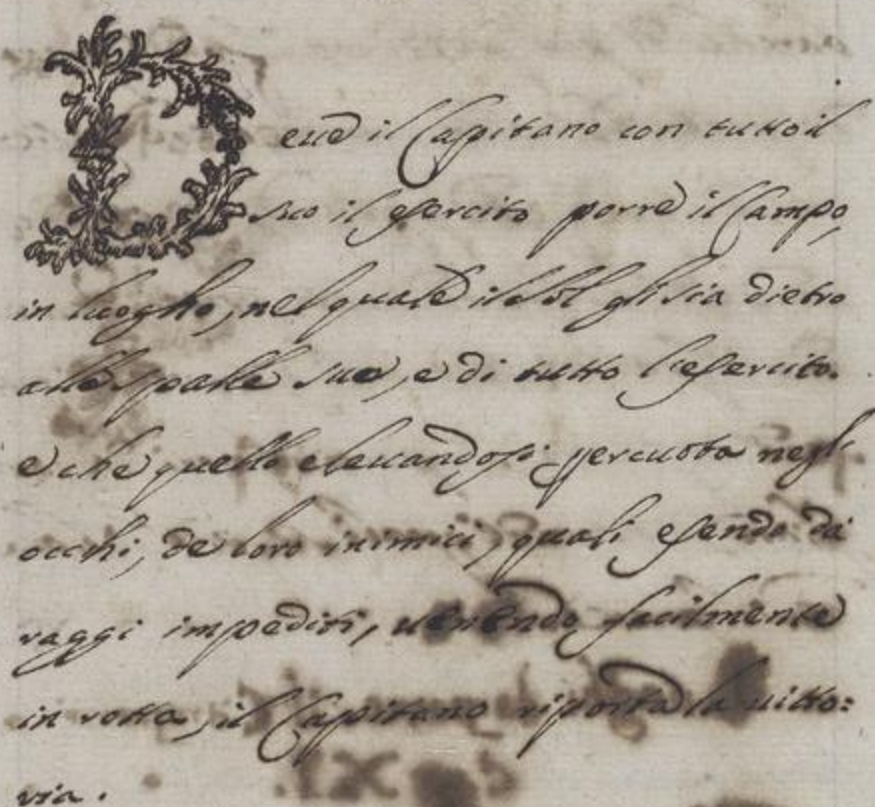 Deue il Capitano con tutto il
suo il esercito porre il Campo,
in luogho, nel quale il sol gli sia dietro
alle spalle sue, e di tutto l'esercito.
e che quello eleuandosi percuota negl'
occhi, de loro inimici, quali esendo da
raggi impediti, uenendo facilmente
in rotta, il Capitano riporta la uitto:
ria.